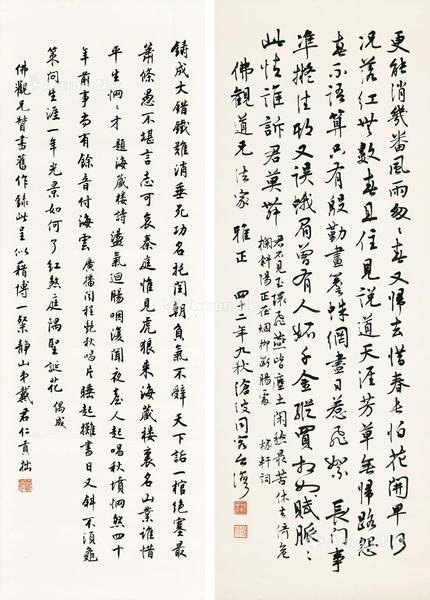 更能消幾番風雨匆〻春又歸去惜春長怕花開早何
況落紅無數春且住見說道天涯芳草無歸路怨
春不語算只有殷勤畫簷蛛網盡日惹飛絮 長門事
準擬佳期又誤蛾眉曾有人妒千金縱買相如賦脈〻
此情誰訴君莫舞
君不見玉環飛燕皆塵土閑愁最苦休去倚危
欄斜陽正在烟柳斷腸處 稼軒詞
佛觀道兄法家 雅正 四十二年九秋滄波同客台灣
鑄成大錯鐵難消垂死功名托閏朝負氣不辭天下詬一棺絕塞最
蕭條愚不堪言志可哀秦庭惟見虎狼來海藏樓裏名山業誰惜
平生惘〻才 題海藏樓詩 盪氣迴腸咽復聞夜臺人起唱秋墳惘然四十
年前事尚有餘音付海雲 廣播聞程艷秋唱片 睡起攤書日又斜不須龜
策問生涯一年光景如何了紅煞庭隅聖誕花 偶成
佛觀兄督書舊作錄此呈似藉博一粲靜山弟戴君仁貢拙